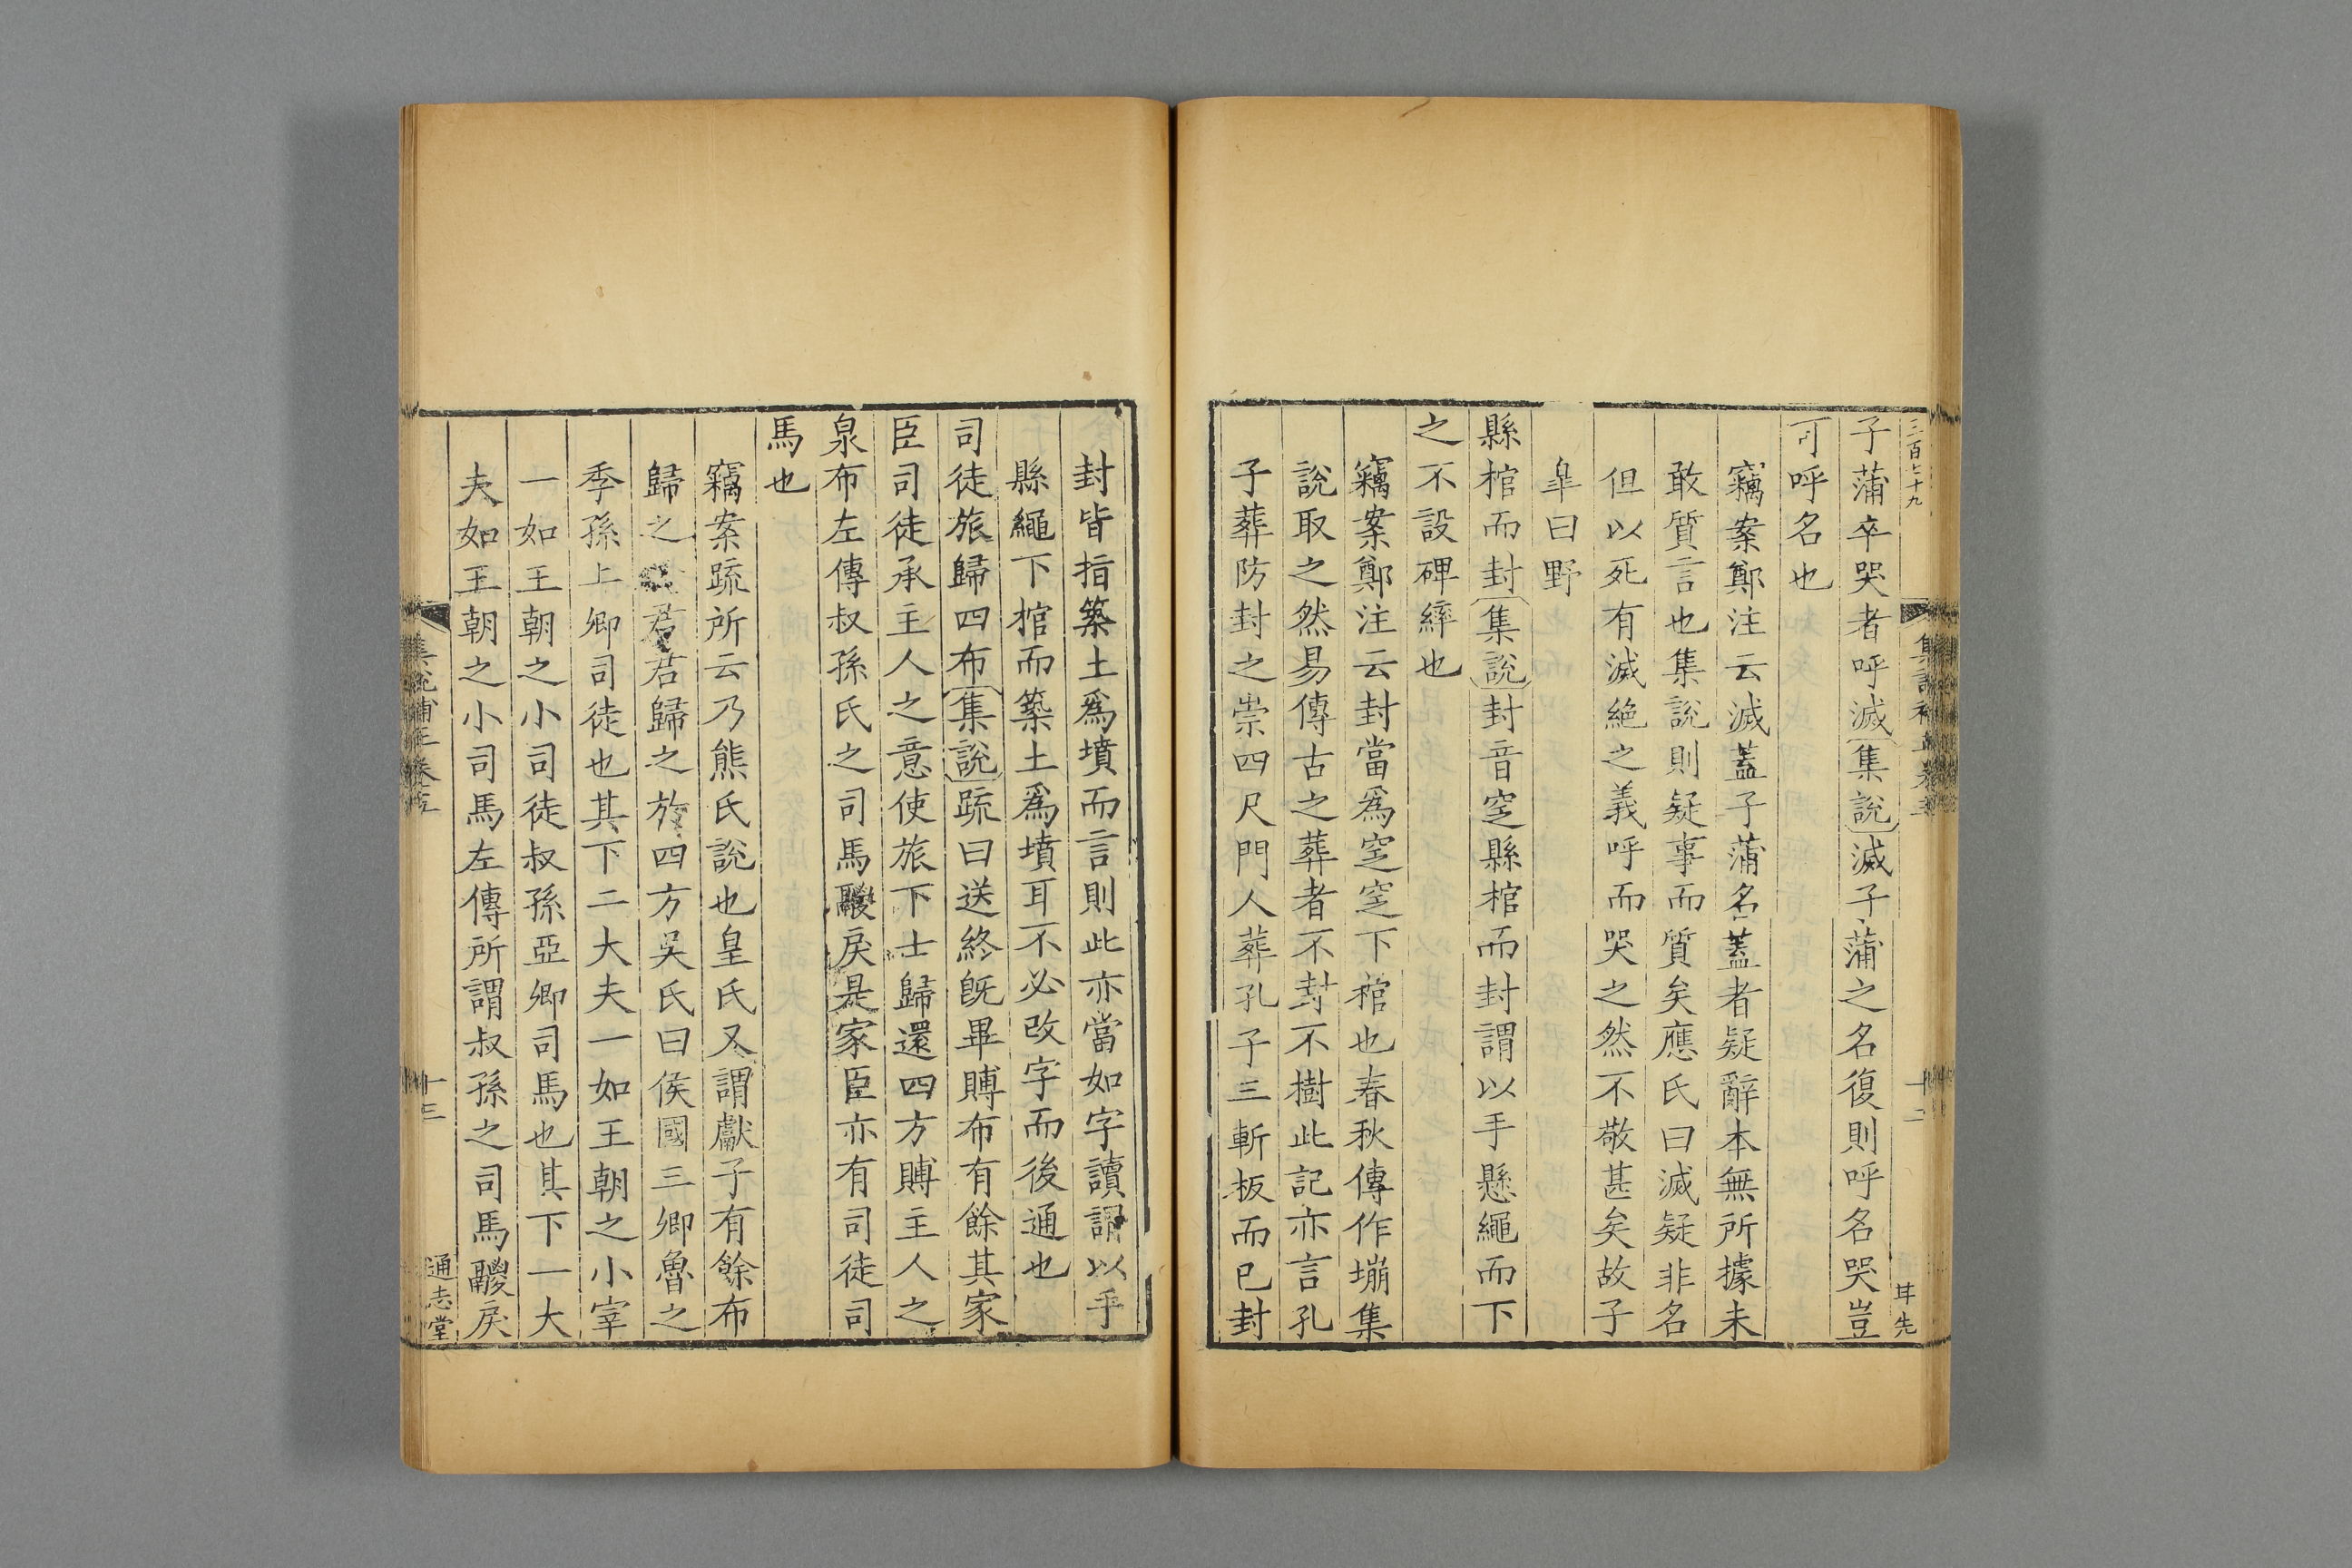 三百七十九
耳先
子蒲卒哭者呼滅集說滅子蒲之名復則呼名哭豈
可呼名也
竊案鄭注云滅蓋子蒲名蓋者疑辭本無所據未
敢質言也集說則疑事而質矣應氏曰滅疑非名
但以死有滅絶之義呼而哭之然不敬甚矣故子
臯曰野
縣棺而封集說封音窆縣棺而封謂以手懸繩而下
之不設碑繂也
竊案鄭注云封當爲窆窆下棺也春秋傳作塴集
說取之然易傳古之葬者不封不樹此記亦言孔
子葬防封之崇四尺門人葬孔子三斬板而已封
封皆指築土爲墳而言則此亦當如字讀謂以手
縣繩下棺而築土爲墳耳不必改字而後通也
司徒旅歸四布集說疏曰送終旣畢賻布有餘其家
臣司徒承主人之意使旅下士歸還四方賻主人之
泉布左傳叔孫氏之司馬鬷戾是家臣亦有司徒司
馬也
竊案疏所云乃熊氏說也皇氏又謂獻子有餘布
歸之君君歸之於四方吳氏曰侯國三卿魯之
季孫上卿司徒也其下二大夫一如王朝之小宰
一如王朝之小司徒叔孫亞卿司馬也其下一大
夫如王朝之小司馬左傳所謂叔孫之司馬鬷戾
集說補正卷五
十三
通志堂